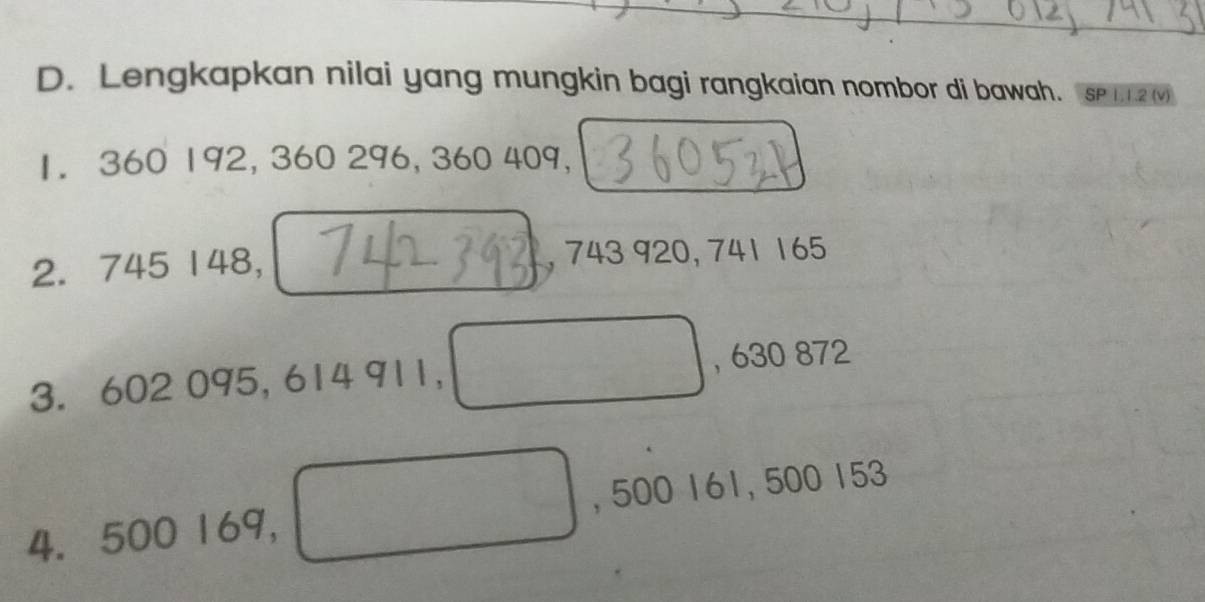 612, 741 31
D. Lengkapkan nilai yang mungkin bagi rangkaian nombor di bawah. SP 1.1.2 (v)
1. 360 192, 360 296, 360 409, 3605
2. 745 148, 742 393, 743 920, 741 165
3. 602 095, 614 911, , 630 872
4. 500 169, , 500 161, 500 153